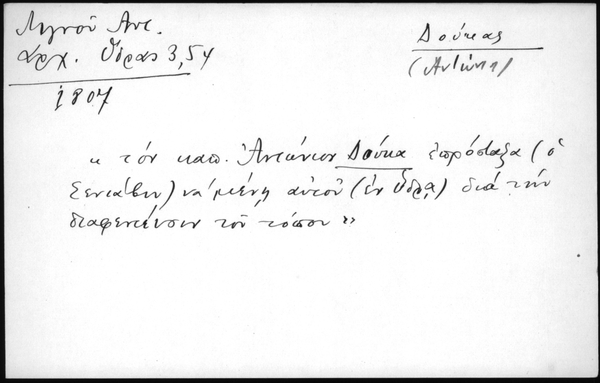 Λιγνού Αντ.
Αρχ. Ύδρας 3,54
1807
Δούκας
(Αντώνη)
« τόν καπ. Ἀντώνιον Δούκα ἐπρόσταξα (ὁ
Σενιάβιν) νά μένῃ αὐτοῦ (ἐν Ὕδρᾳ) διά τήν
διαφένδευσιν τοῦ τόπου »